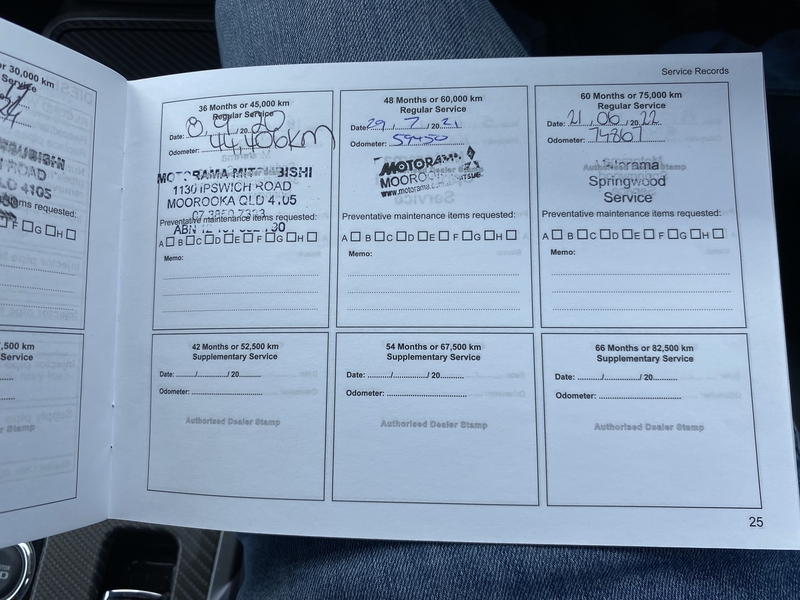 or 30,000 km
Service
ROAD
LD 4105
items requested:
F G H
,500 km
Service
er Stamp
Service Records
36 Months or 45,000 km
Regular Service
Date: 8, 9, 20 20
Odometer: 44,406km
MOTORAMA MITSUBISHI
1130 IPSWICH ROAD
MOOROOKA QLD 4105
Preventative maintenance items requested:
A B C D E F G H
Memo:
48 Months or 60,000 km
Regular Service
Date: 29 / 7 / 20 21
Odometer: 59450
MOTORAMA
Preventative maintenance items requested:
A B C D E F G H
Memo:
60 Months or 75,000 km
Regular Service
Date: 21 / 06 / 20 22
Odometer: 74867
Motorama
Springwood
Service
Preventative maintenance items requested:
A B C D E F G H
Memo:
42 Months or 52,500 km
Supplementary Service
Date: ....../....../ 20......
Odometer: ..............................
Authorised Dealer Stamp
54 Months or 67,500 km
Supplementary Service
Date: ....../....../ 20......
Odometer: ..............................
Authorised Dealer Stamp
66 Months or 82,500 km
Supplementary Service
Date: ....../....../ 20......
Odometer: ..............................
Authorised Dealer Stamp
25